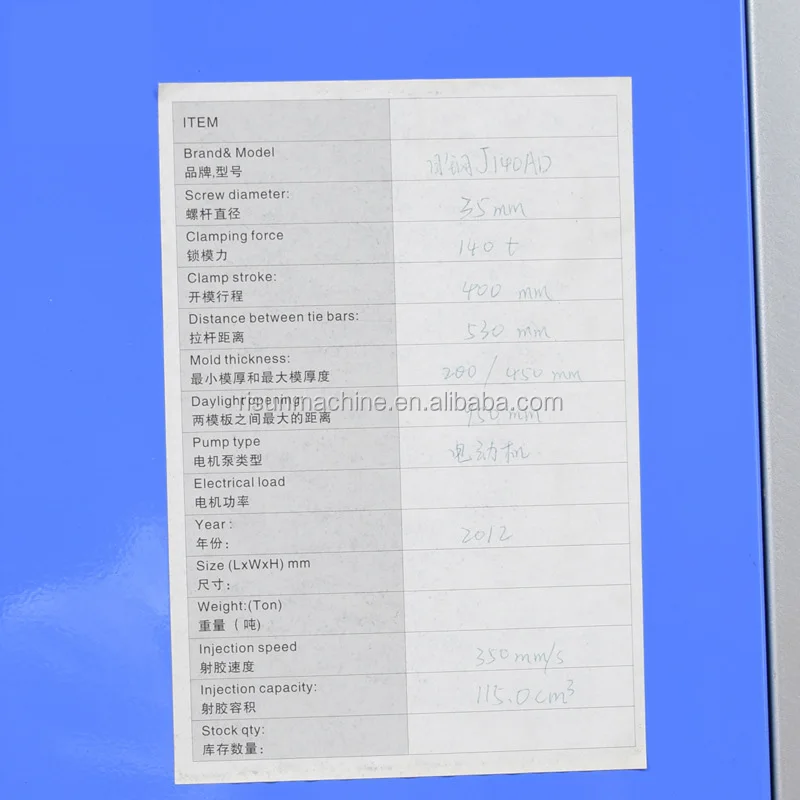 ITEM
Brand& Model
品牌,型号
日钢 J140AD
Screw diameter:
螺杆直径
35 mm
Clamping force
锁模力
140 t
Clamp stroke:
开模行程
400 mm
Distance between tie bars:
拉杆距离
530 mm
Mold thickness:
最小模厚和最大模厚度
200 / 450 mm
Daylight opening:
两模板之间最大的距离
950 mm
risunmachine.en.alibaba.com
Pump type
电机泵类型
电动机
Electrical load
电机功率
Year :
年份:
2012
Size (LxWxH) mm
尺寸:
Weight:(Ton)
重量 ( 吨)
Injection speed
射胶速度
350 mm/s
Injection capacity:
射胶容积
115.0 cm³
Stock qty:
库存数量: